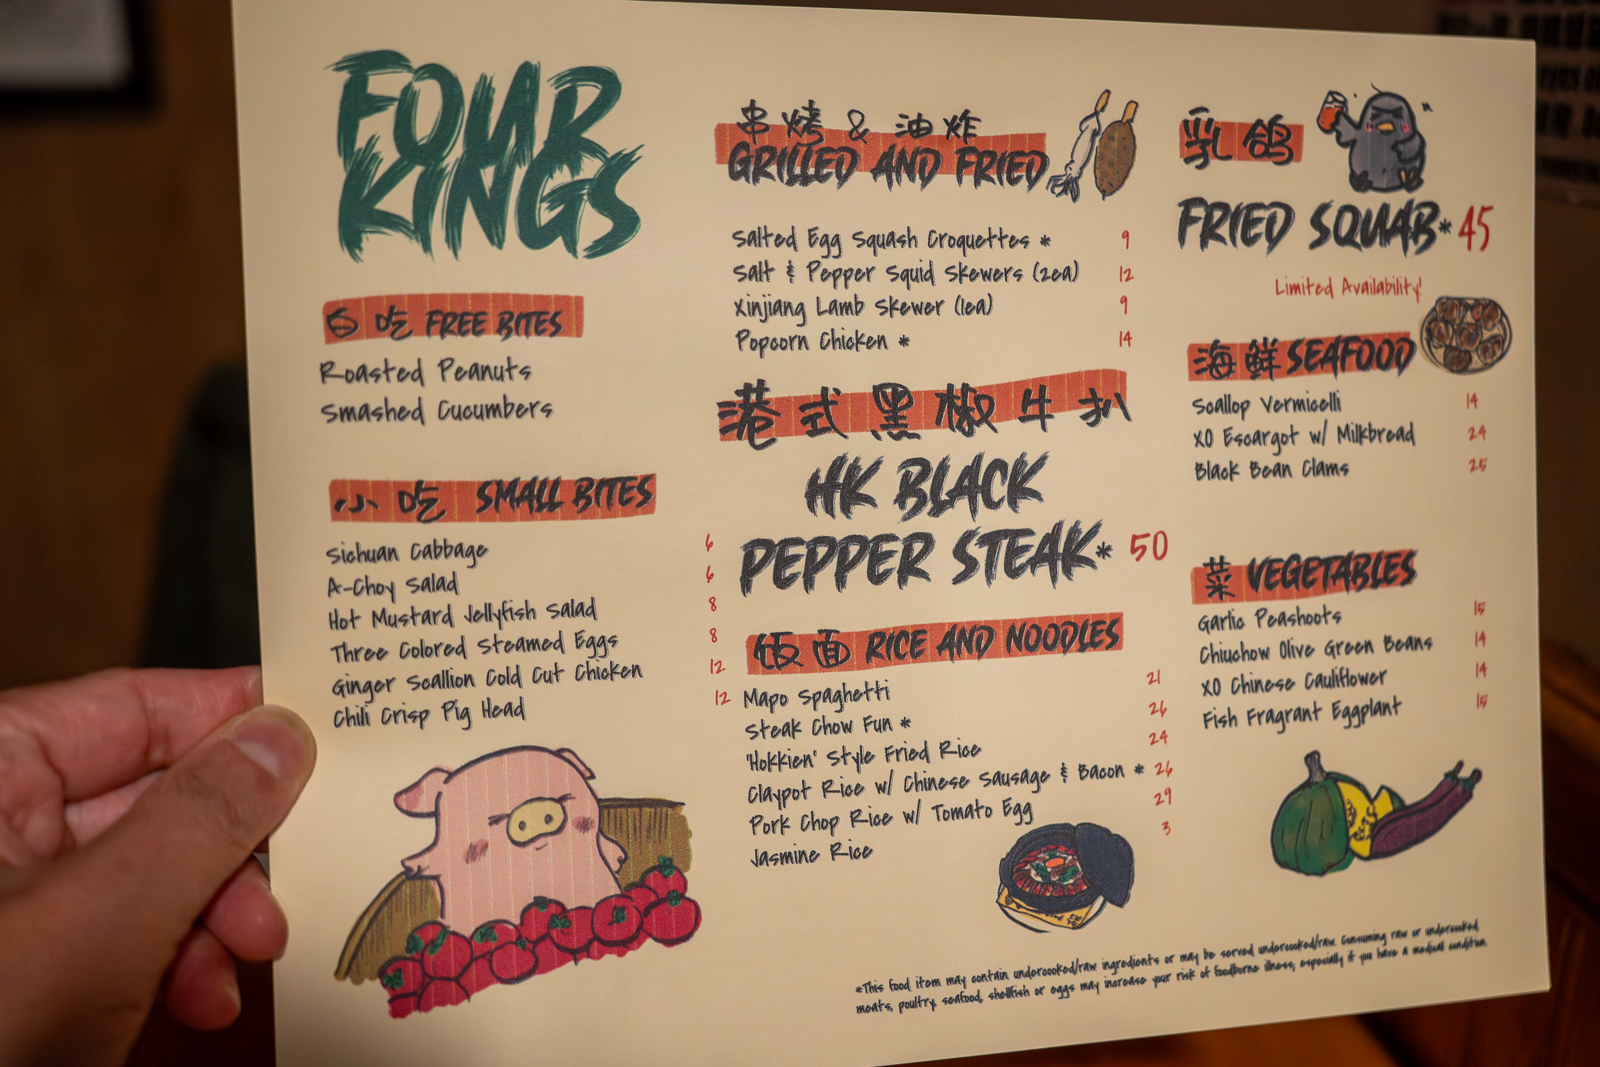 FOUR
KINGS
白 吃 FREE BITES
Roasted Peanuts
Smashed Cucumbers
小 吃 SMALL BITES
Sichuan Cabbage 6
A-Choy Salad 6
Hot Mustard Jellyfish Salad 8
Three Colored Steamed Eggs 8
Ginger Scallion Cold Cut Chicken 12
Chili Crisp Pig Head 12
串烤 & 油炸
GRILLED AND FRIED
Salted Egg Squash Croquettes * 9
Salt & Pepper Squid Skewers (2ea) 12
Xinjiang Lamb Skewer (1ea) 9
Popcorn Chicken * 14
港式黑椒牛扒
HK BLACK
PEPPER STEAK* 50
飯面 RICE AND NOODLES
Mapo Spaghetti 21
Steak Chow Fun * 26
'Hokkien' Style Fried Rice 24
Claypot Rice w/ Chinese Sausage & Bacon * 26
Pork Chop Rice w/ Tomato Egg 29
Jasmine Rice 3
乳鴿
FRIED SQUAB* 45
Limited Availability!
海鮮 SEAFOOD
Scallop Vermicelli 14
XO Escargot w/ Milkbread 24
Black Bean Clams 25
菜 VEGETABLES
Garlic Peashoots 15
Chiuchow Olive Green Beans 14
XO Chinese Cauliflower 14
Fish Fragrant Eggplant 15
*This food item may contain undercooked/raw ingredients or may be served undercooked/raw. Consuming raw or undercooked
meats, poultry, seafood, shellfish or eggs may increase your risk of foodborne illness, especially if you have a medical condition.